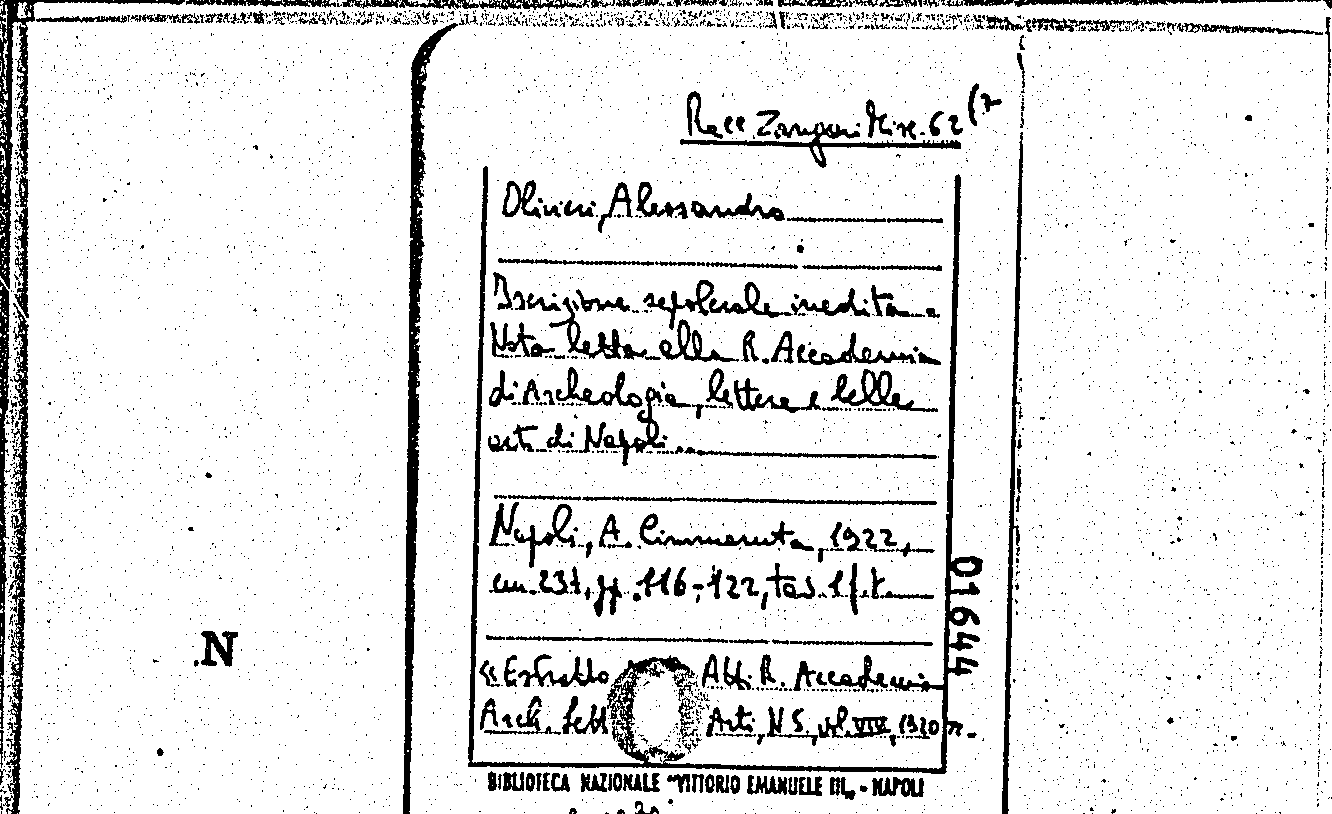 Racc. Zangari Misc. 62 (7
Olivieri, Alessandro
Iscrizione sepolcrale inedita.
Nota letta alla R. Accademia
di Archeologia, lettere e belle
arti di Napoli...
Napoli, A. Cimmaruta, 1922,
cm. 23½, pp. 116-122, tav. 1 f.t.
01644
N
«Estratto Atti R. Accademia
Arch. Lett Arti, N.S., vol. VIV, 1920
BIBLIOTECA NAZIONALE "VITTORIO EMANUELE III„ - NAPOLI